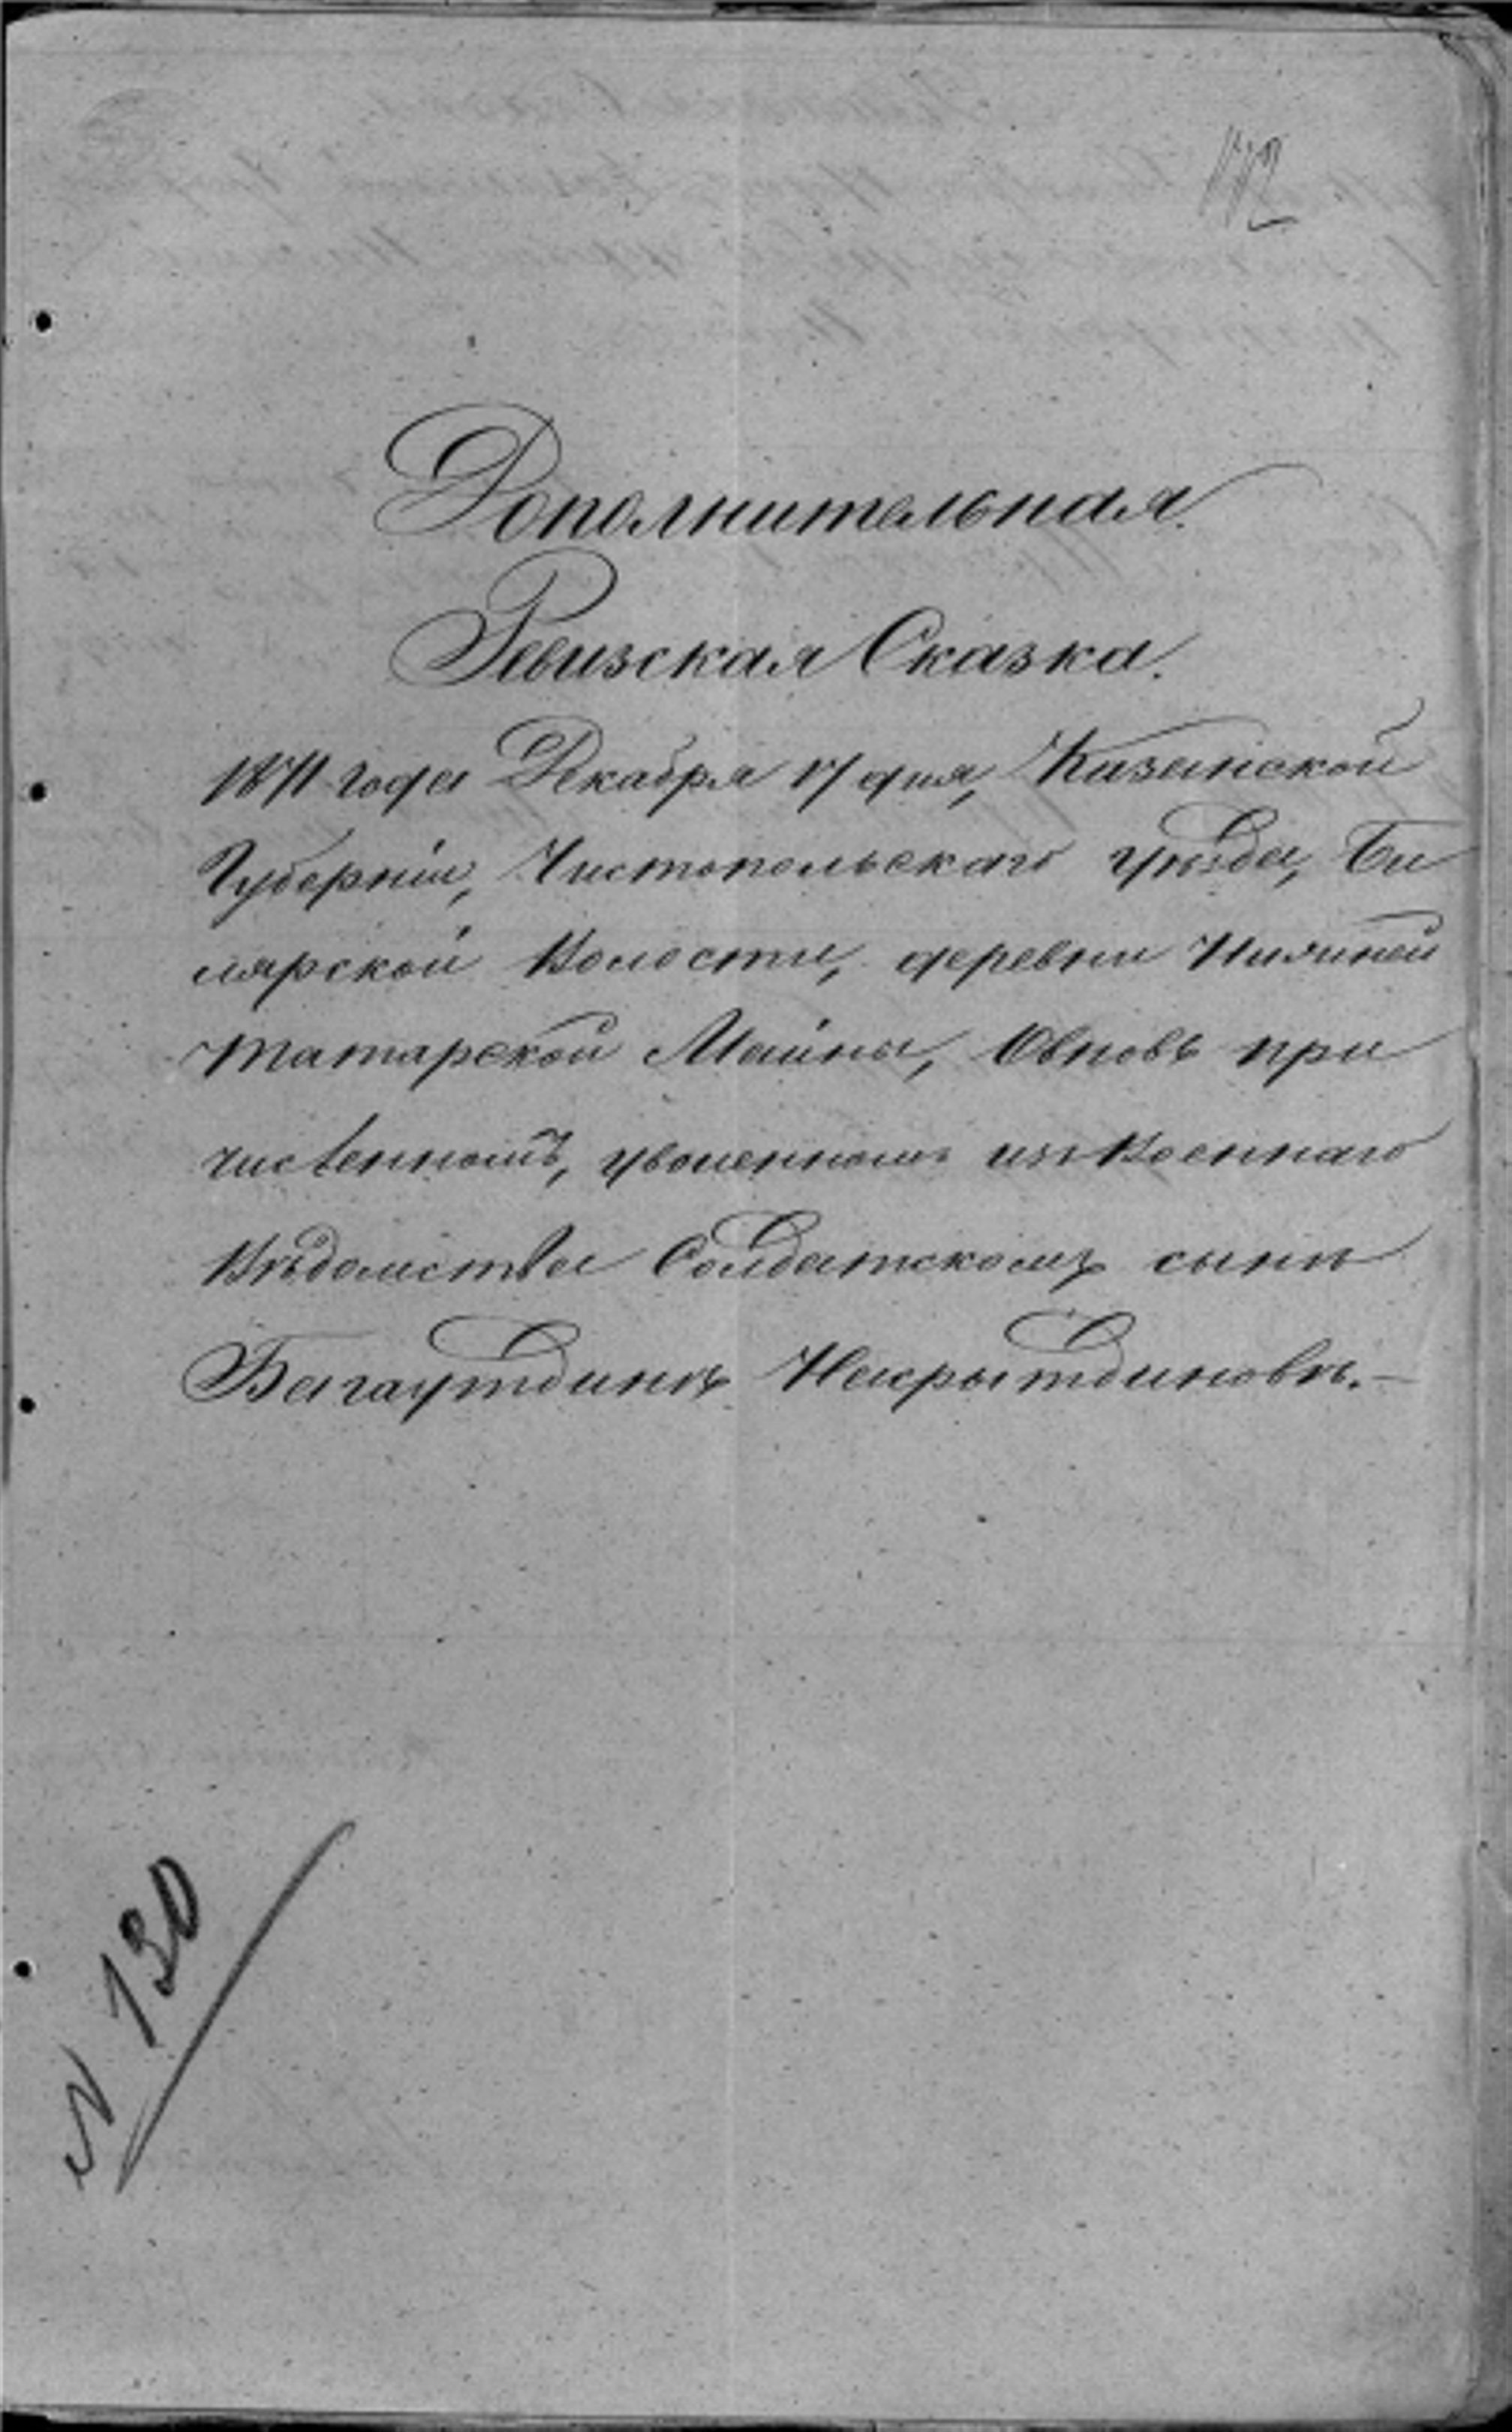 Дополнительная
Ревизская Сказка.
1871 года Декабря 17 дня, Казанской
Губерніи, Чистопольскаго уѣзда, Би
лярской Волости, деревни Нижней
Татарской Майны, О вновь при
численномъ, уволенномъ изъ Военнаго
Вѣдомства Солдатскомъ сынѣ
Багаутдинѣ
N 130